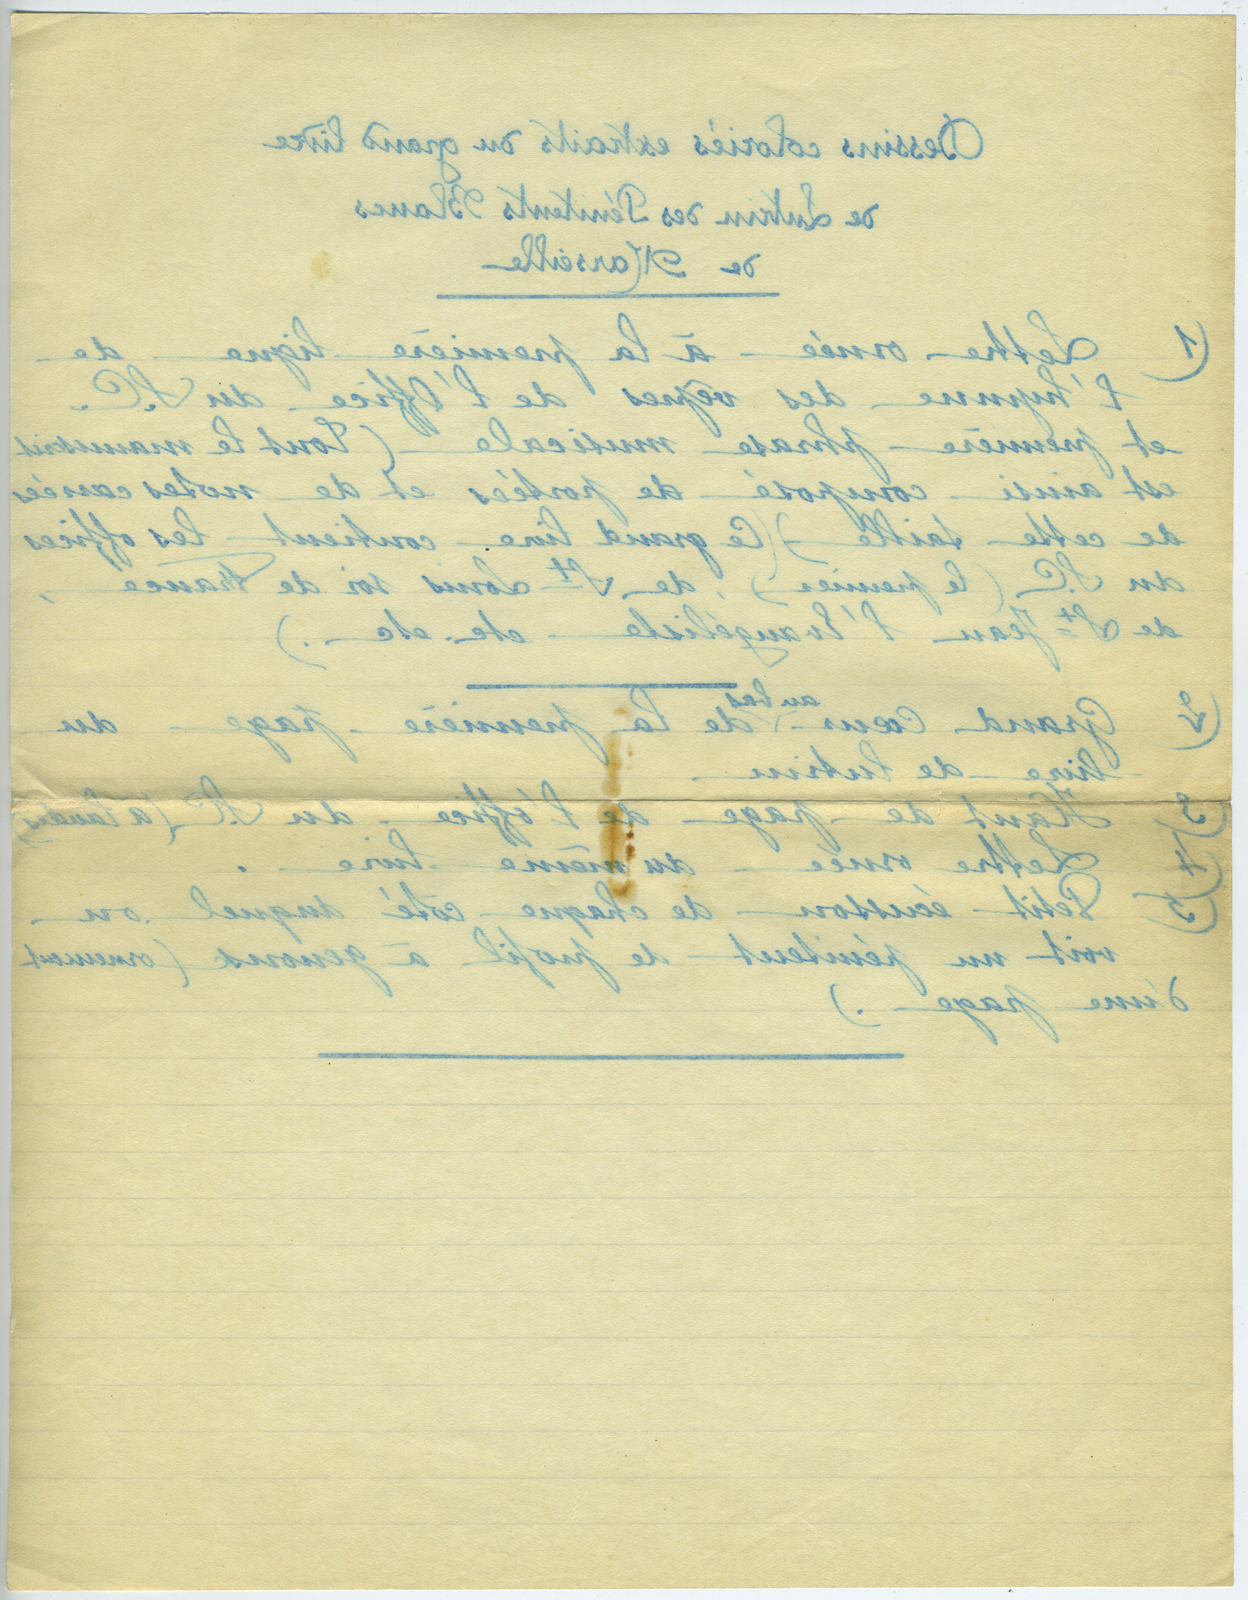 Dessins coloriés extraits du grand livre
de Lutrin des Pénitents Blancs
de Marseille
1) Lettre ornée à la première ligne de
l'hymne des vêpres de l'Office du S.C.
et première phrase musicale (Tout le manuscrit
est ainsi composé de portées et de notes carrées
de cette taille) (Ce grand livre contient les offices
du S.C. (le premier), de St Louis roi de France,
de St Jean l'Evangéliste etc. etc.)
2) Grand Cœur au bas de la première page du
livre de lutrin.
3) Haut de page de l'office du S.C.
4) Lettre ornée du même livre.
5) Petit écusson de chaque côté duquel on
voit un pénitent de profil à genoux (ornement
d'une page.)